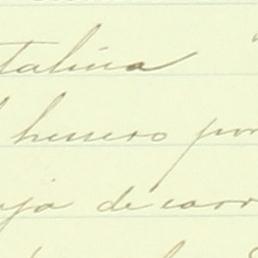 talina
herrero por
ja de carr